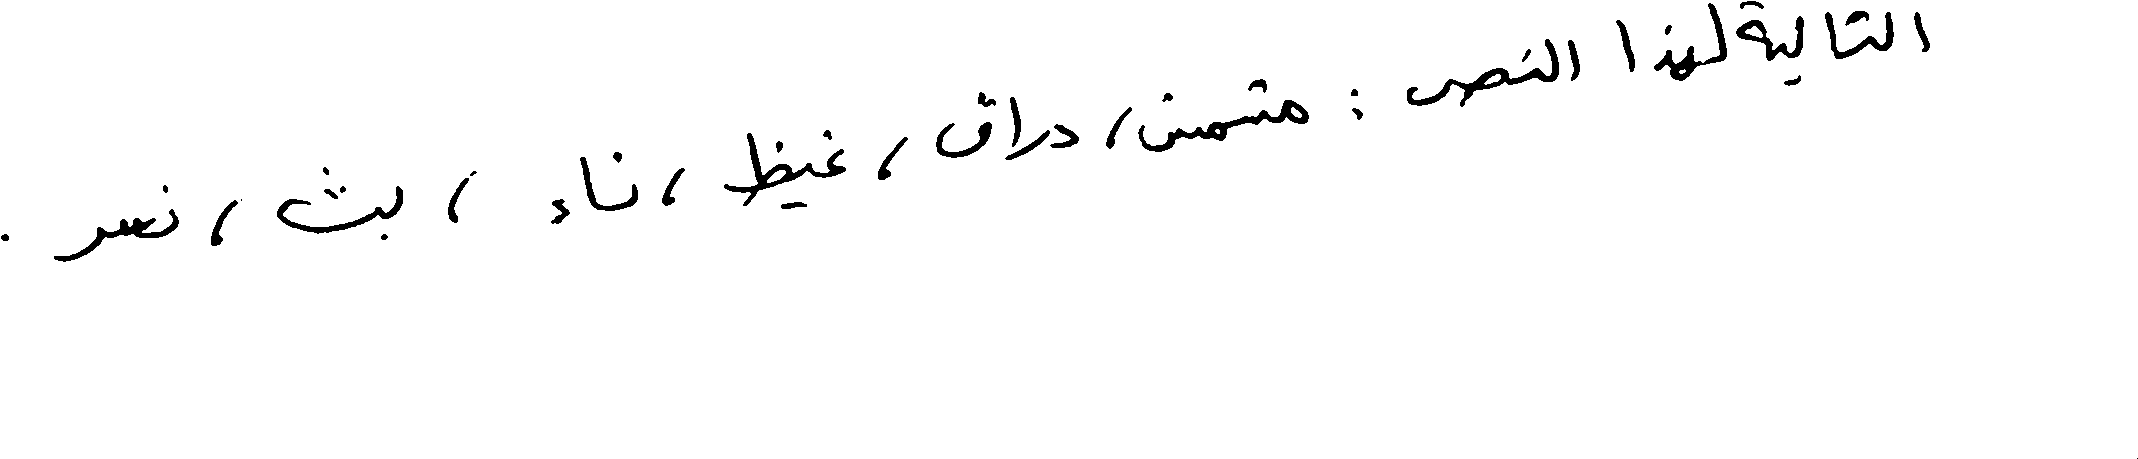 التالية لهذا النص : مشمش، دراق، غيظ، ناء، بث، نسر .